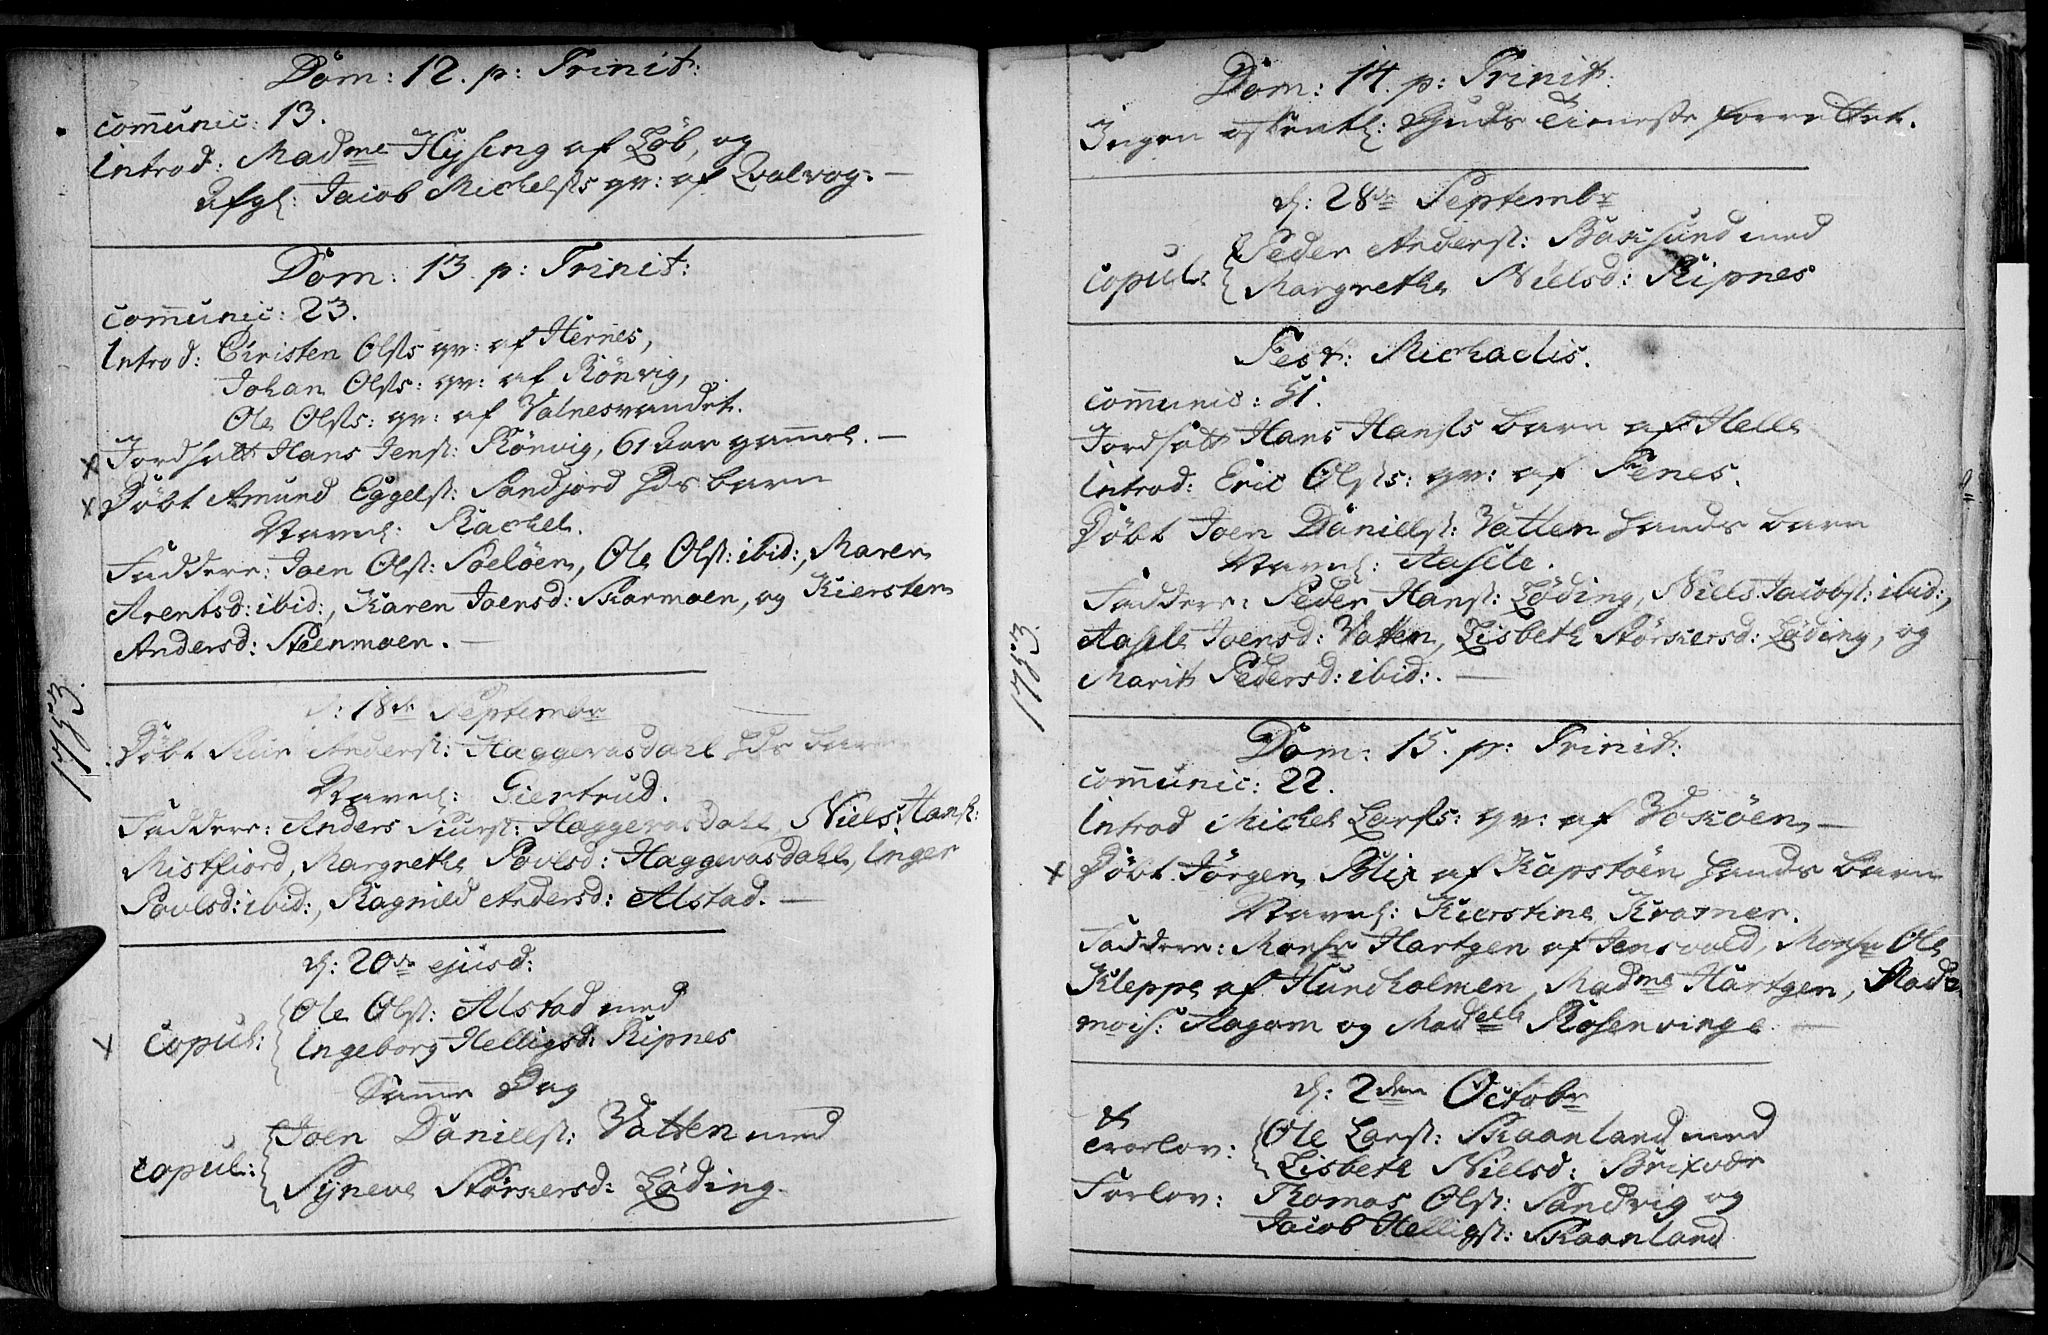 Dom: 12. p: Trinit:
communic: 13.
Introd: Madme Hysing af Løb, og
Afgl: Jacob Michelsts qv: af Qvalvog. —
Dom: 13. p: Trinit:
communic: 23.
Introd: Christen Olsts qv: af Hernes,
Johan Olsts: qv: af Rönvig,
Ole Olsts: qv: af Valnesvandet.
Jordsatt Hans Jenst: Rönvig, 61 Aar gammel. —
Döbt Amund Eggelst: Sandjord Hds barn
Navnl: Rachel.
Faddere: Joen Olst: Soelöen, Ole Olst: ibid:, Maren
Arentsd: ibid:, Karen Joensd: Skarmoen, og Kiersten
Andersd: Steenmoen. —
1753.
d: 18de Septembr
Döbt Siur Anderst: Haggevasdahl Hds barn
Navnl: Giertrud.
Faddere: Anders Siurst: Haggevasdahl, Niels Hanst:
Mistfiord, Margrethe Povlsd: Haggevasdahl, Inger
Povlsd: ibid:, Ragnild Andersd: Alstad. —
d: 20de ejusd:
Ole Olst: Alstad med
copul:
Ingeborg Helligsd: Ripnes
Samme Dag
Joen Daniellst: Vatten med
copul:
Syneve Störkersd: Löding.
Dom: 14. p: Trinit:
Ingen offentl: Guds Tieneste forrettet.
d: 28de Septembr
Peder Anderst: Baksund med
copul:
Margrethe Nielsd: Ripnes
Fest: Michaelis.
communic: 51.
Jordsatt Hans Hansts barn af Helle
Introd: Eric Olsts: qv: af Fenes.
Döbt Joen Daniellst: Vatten Hands barn
Navnl: Aasele.
Faddere: Peder Hanst: Löding, Niels Jacobst: ibid:,
Aasele Joensd: Vatten, Lisbeth Störkersd: Löding, og
Marit Pedersd: ibid:. —
1753.
Dom: 15. p: Trinit:
communic: 22.
Introd Michel Larsts: qv: af Voköen —
Döbt Jörgen Blix af Kapstöen Hands barn
Navnl: Kierstine Kramer.
Faddere: Monsr Hartgen af Jensvold, Monsr Ole
Kleppe af Hundholmen, Madme Hartgen, Made
mois: Aagom og Madelle Rosenvinge —
d: 2den Octobr
Trorlov:
Ole Larst: Skaanland med
Lisbeth Nielsd: Brixvær
Forlov: Thomas Olst: Sandvig og
Jacob Helligst: Skaanland